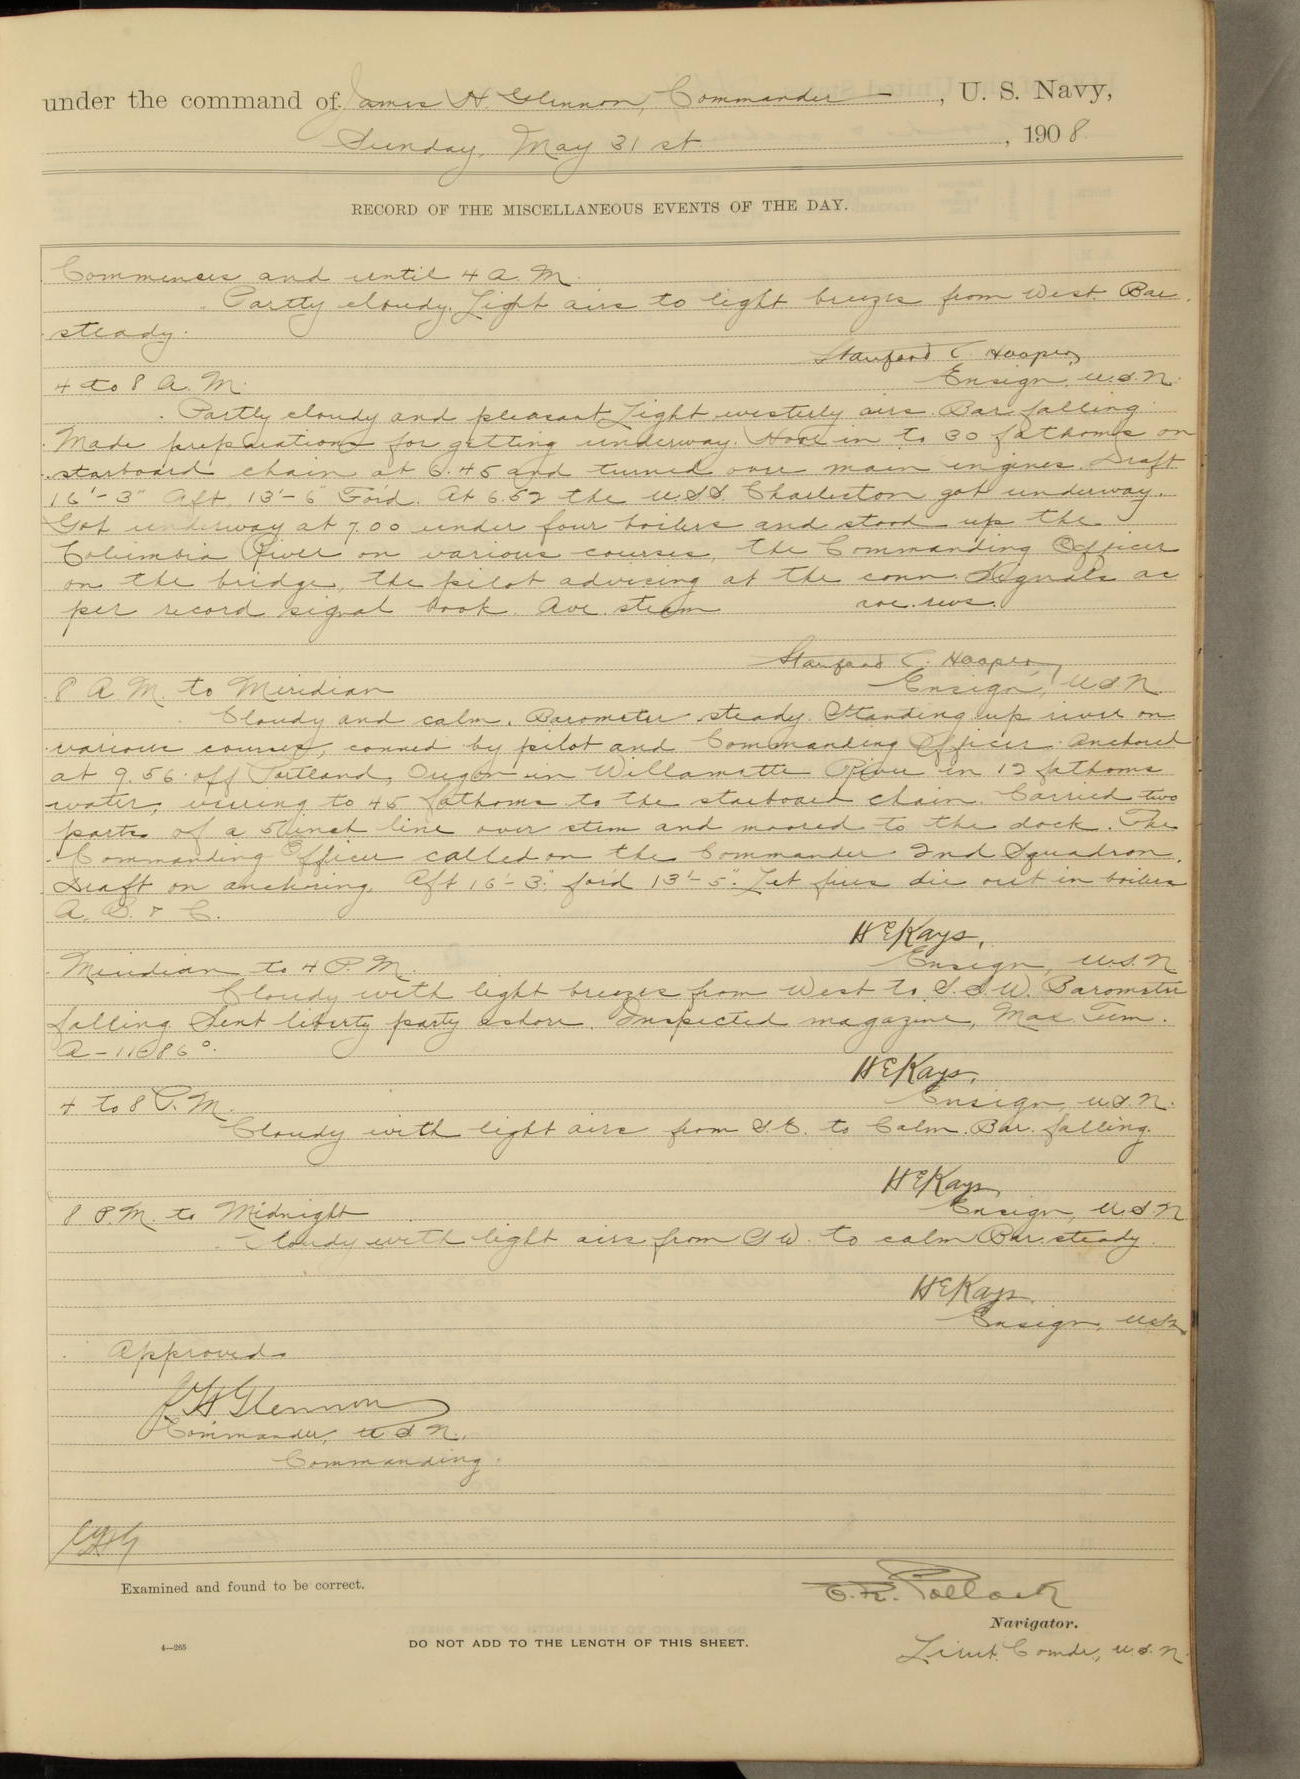 under the command of James H. Glennon, Commander — , U. S. Navy,
Sunday, May 31st , 1908
RECORD OF THE MISCELLANEOUS EVENTS OF THE DAY.
Commences and until 4 A. M.
Partly cloudy. Light airs to light breezes from West. Bar.
steady.
Stanford C. Hooper,
Ensign, U.S.N.
4 to 8 A. M.
Partly cloudy and pleasant. Light westerly airs. Bar falling.
Made preparations for getting underway. Hove in to 30 fathoms on
starboard chain at 6.45 and turned over main engines. Draft
16'-3" Aft. 13'-6" For'd. At 6.52 the U.S.S. Charleston got underway.
Got underway at 7.00 under four boilers and stood up the
Columbia River on various courses, the Commanding Officer
on the bridge, the pilot advising at the conn. Signals as
per record signal book. Ave steam ave. revs.
Stanford C. Hooper,
Ensign, U.S.N.
8 A. M. to Meridian
Cloudy and calm. Barometer steady. Standing up river on
various courses, conned by pilot and Commanding Officer. Anchored
at 9.56 off Portland, Oregon in Willamette River in 12 fathoms
water, veering to 45 fathoms to the starboard chain. Carried two
parts of a 5 inch line over stem and moored to the dock. The
Commanding Officer called on the Commander 2nd Squadron.
Draft on anchoring, Aft 16'-3". for'd 13'-5". Let fires die out in boilers
A. B. & C.
H E Kays,
Ensign, U.S.N
Meridian to 4 P. M.
Cloudy with light breezes from West to S.S.W. Barometer
falling. Sent liberty party ashore. Inspected magazine, Max Tem.
A - 86°.
H E Kays,
Ensign, U.S.N.
4 to 8 P. M.
Cloudy with light airs from S.E. to Calm. Bar. falling.
H E Kays,
Ensign, U.S.N
8 P.M. to Midnight
Cloudy with light airs from SW. to calm Bar. steady.
H E Kays.
Ensign, USN
Approved
J H Glennon
Commander, U.S.N.,
Commanding.
JHG
Examined and found to be correct.
E. R. Pollock
Navigator.
4—265
DO NOT ADD TO THE LENGTH OF THIS SHEET.
Lieut. Comdr, U.S.N.